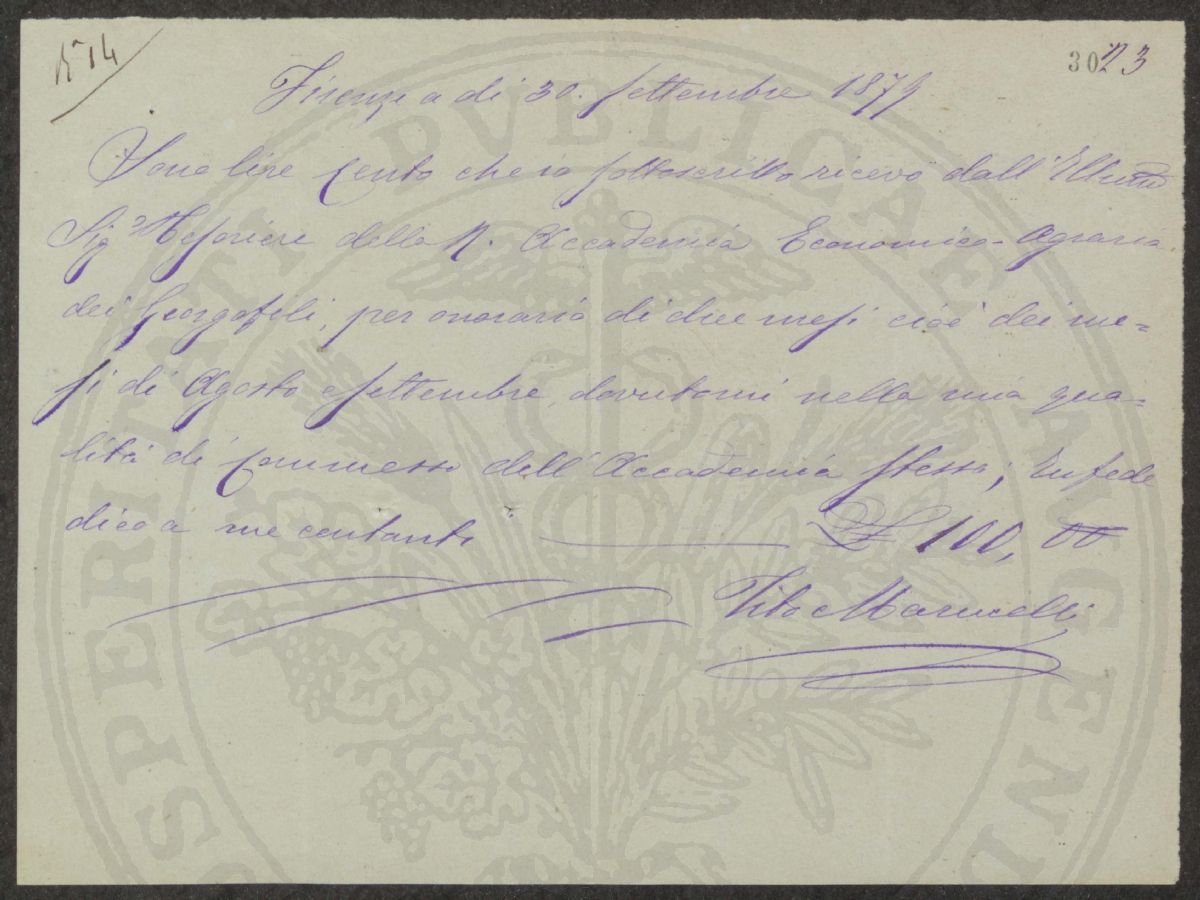 N° 14
3023
Firenze a di 30. Settembre 1879
Sono lire Cento che io sottoscritto ricevo dall' Illmo
Sig Tesoriere della R. Accademia Economico-Agraria
dei Georgofili, per onorario di due mesi cioè dei me-
si di Agosto e Settembre, dovutomi nella mia qua-
lità di Commesso dell' Accademia stessa; In fede
dico a me contanti £ 100, 00
Vito Marucelli
PROSPERITATI PUBLICAE AUGENDAE